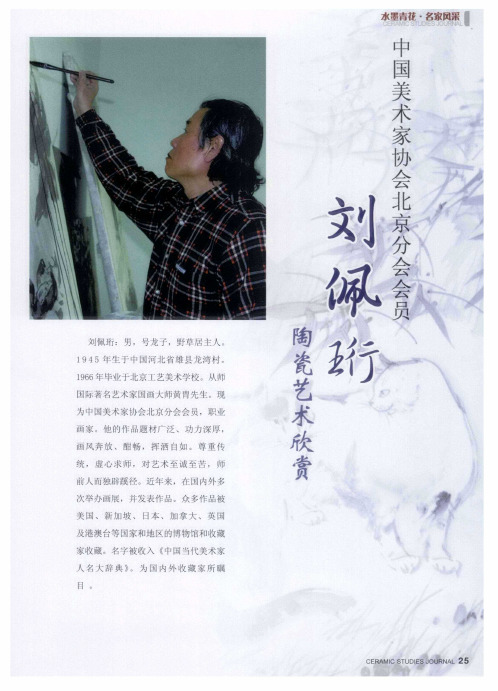 水墨青花·名家风采
CERAMIC STUDIES JOURNAL
中国美术家协会北京分会会员
刘佩珩
陶瓷艺术欣赏
刘佩珩：男，号龙子，野草居主人。
1945 年生于中国河北省雄县龙湾村。
1966 年毕业于北京工艺美术学校。从师
国际著名艺术家国画大师黄胄先生。现
为中国美术家协会北京分会会员，职业
画家。他的作品题材广泛、功力深厚，
画风奔放、酣畅，挥洒自如。尊重传
统，虚心求师，对艺术至诚至苦，师
前人而独辟蹊径。近年来，在国内外多
次举办画展，并发表作品。众多作品被
美国、新加坡、日本、加拿大、英国
及港澳台等国家和地区的博物馆和收藏
家收�。名字被收入《中国当代美术家
人名大辞典》。为国内外收藏家所瞩
目 。
CERAMIC STUDIES JOURNAL 25